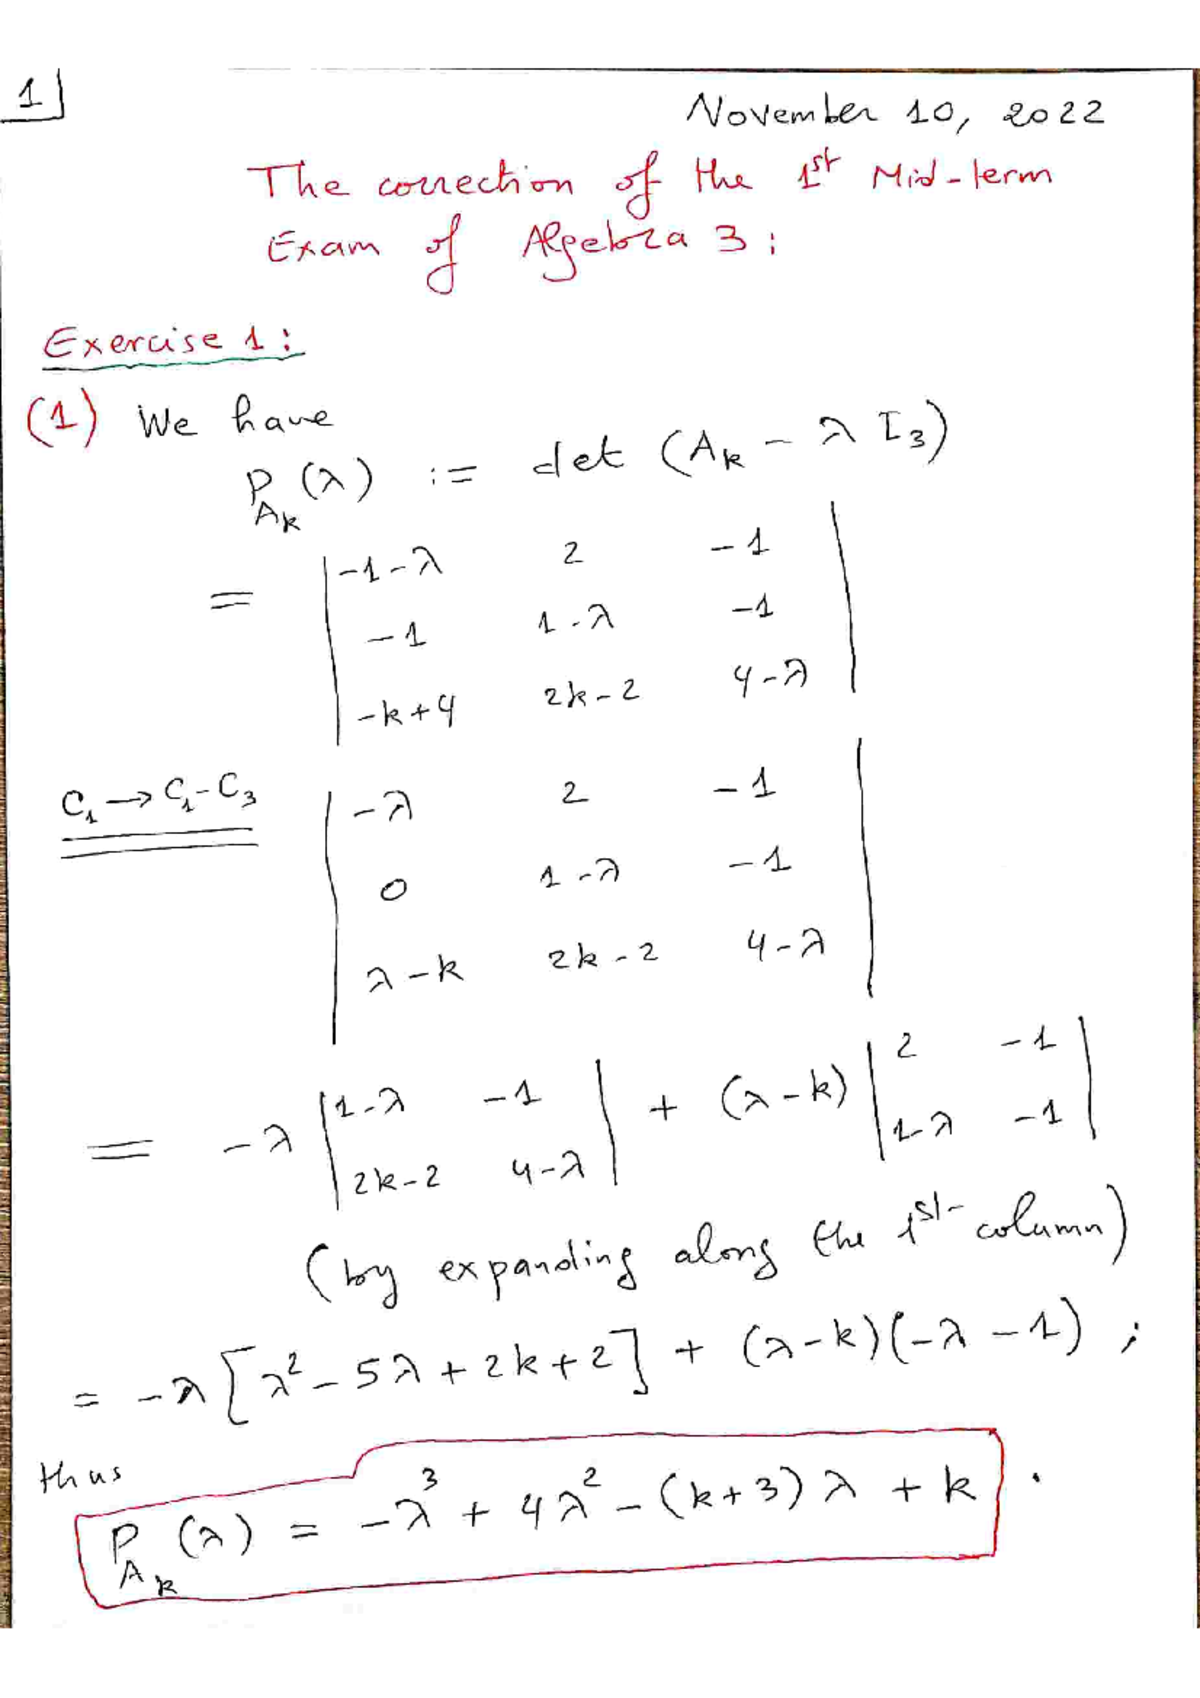 1
November 10, 2022
The correction of the 1st Mid-term
Exam of Algebra 3:
Exercise 1:
(1) We have
P_{A_k}(λ) := det (A_k - λ I_3)
= | -1-λ 2 -1 |
| -1 1-λ -1 |
| -k+4 2k-2 4-λ |
C_1 → C_1 - C_3 | -λ 2 -1 |
| 0 1-λ -1 |
| λ-k 2k-2 4-λ |
= -λ | 1-λ -1 | + (λ-k) | 2 -1 |
| 2k-2 4-λ | | 1-λ -1 |
(by expanding along the 1st column)
= -λ [λ² - 5λ + 2k + 2] + (λ-k)(-λ-1) ;
thus
P_{A_k}(λ) = -λ³ + 4λ² - (k+3)λ + k .